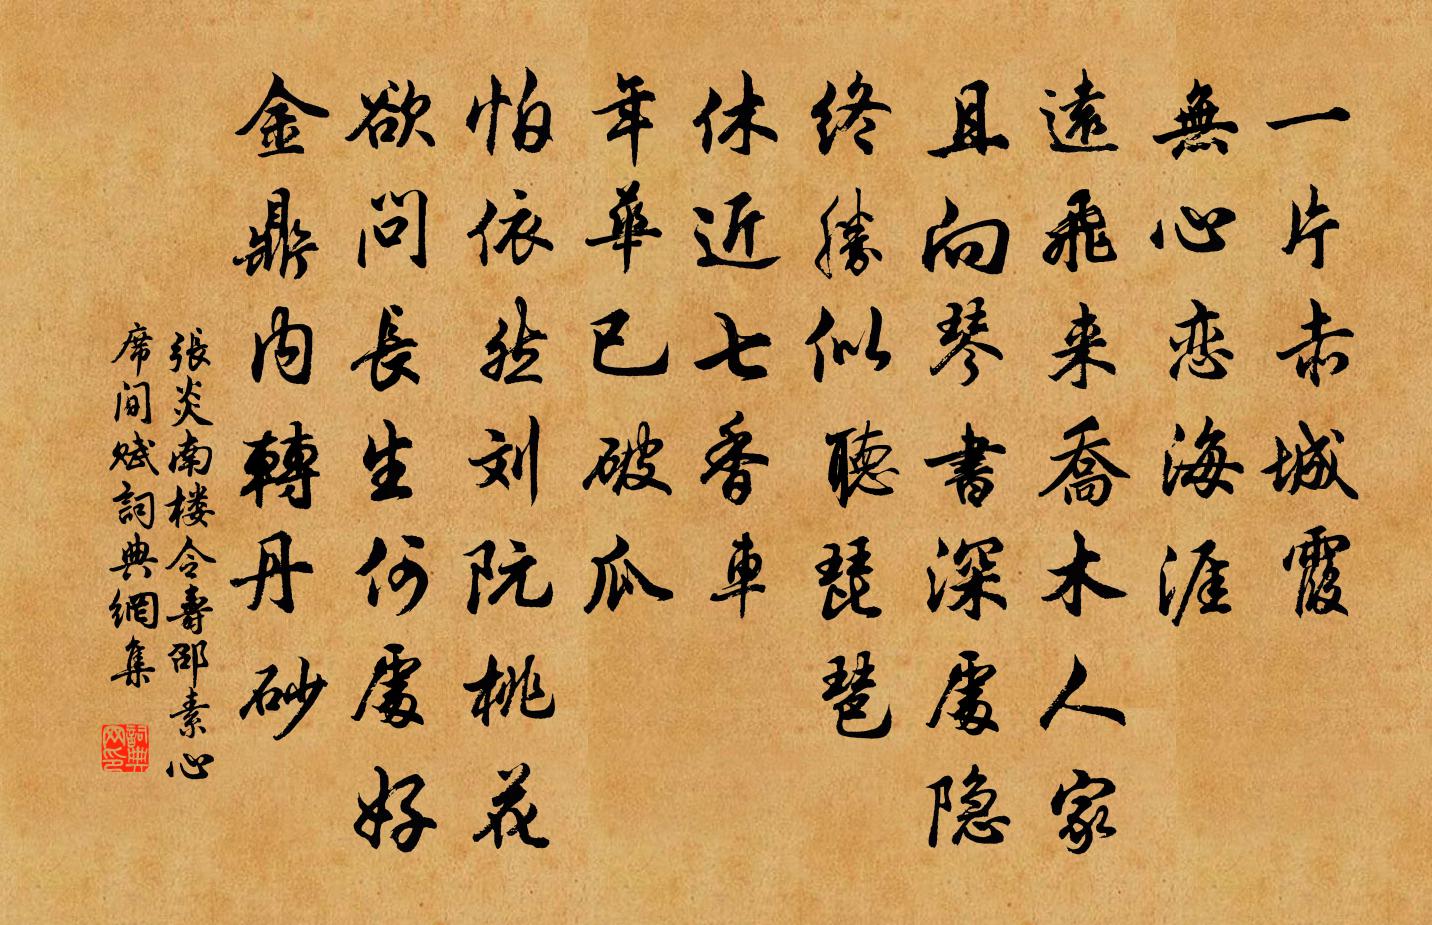 一片赤城霞
無心恋海涯
遠飛来喬木人家
且向琴書深處隐
终勝似聽琵琶
休近七香車
年華已破瓜
怕依然刘阮桃花
欲问長生何處好
金鼎内轉丹砂
張炎南楼令壽邵素心
席间赋詞典網集
詞典网印